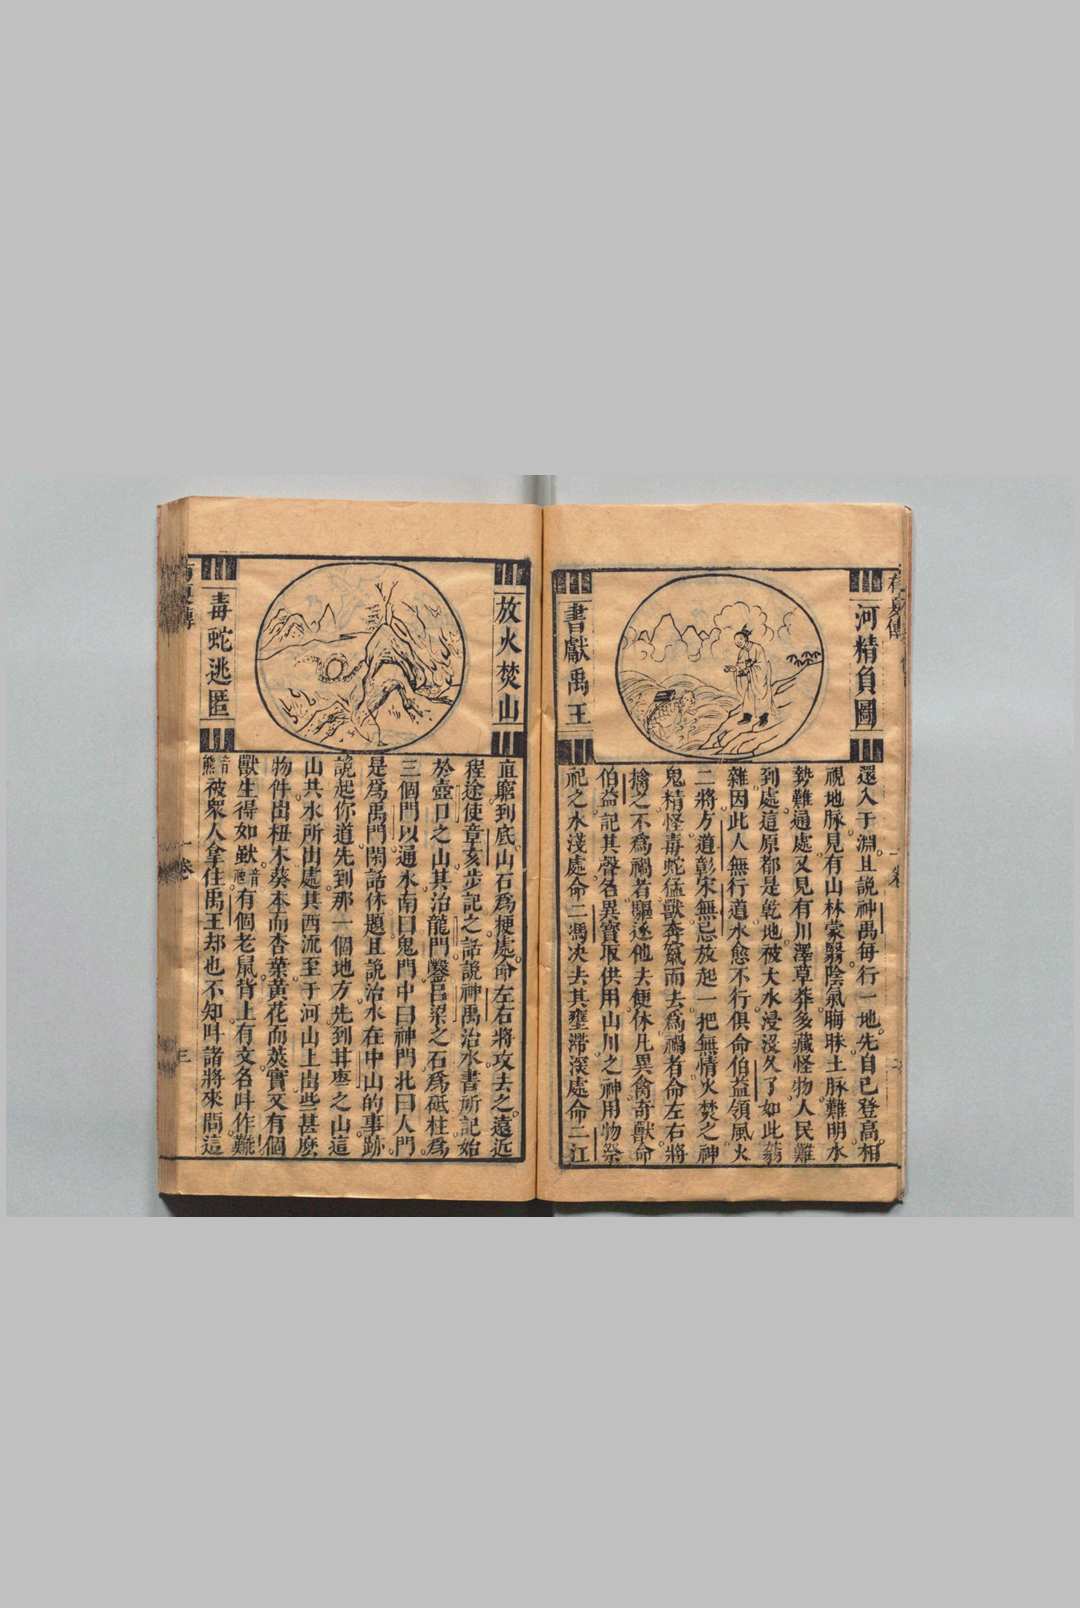 有夏傳
河精負圖
書獻禹王
還入于淵。且説神禹每行一地。先自己登高。相
視地脉。見有山林蒙翳。陰氣晦昧。土脉難明。水
勢難通處。又見有川澤草莽。多藏怪物。人民難
到處。這原都是乾地。被大水浸沒久了。如此蓊
雜。因此人無行道。水愈不行。俱命伯益領風火
二將。方道彰宋無忌。放起一把無情火。焚之。神
鬼精怪。毒蛇猛獸奔竄而去。爲禍者。命左右將
擒之。不爲禍者。驅逐他去便休。凡異禽奇獸。命
伯益記其聲名。異寳取供用。山川之神。用物祭
祀之。水淺處。命二馮决去其壅滯。深處命二江
放火焚山
毒蛇逃匿
直窮到底。山石爲梗處。命左右將攻去之。遠近
程途。使章亥步記之。話説神禹治水。書所記始
於壺口之山。其治龍門。鑿呂梁之石。爲砥柱。爲
三個門以通水。南曰鬼門。中曰神門。北曰人門。
是爲禹門。閑話休題。且説治水在中山的事跡。
説起你道先到那一個地方。先到甘棗之山。這
山共水所出處。其西流至于河。山上出些甚麽
物件。出杻木。葵本而杏葉。黃花而莢實。又有個
獸。生得如䑕音有個老鼠。背上有文。名叫作難
音熊被衆人拿住。禹王却也不知。叫諸將來問。這
有夏傳
一卷
三